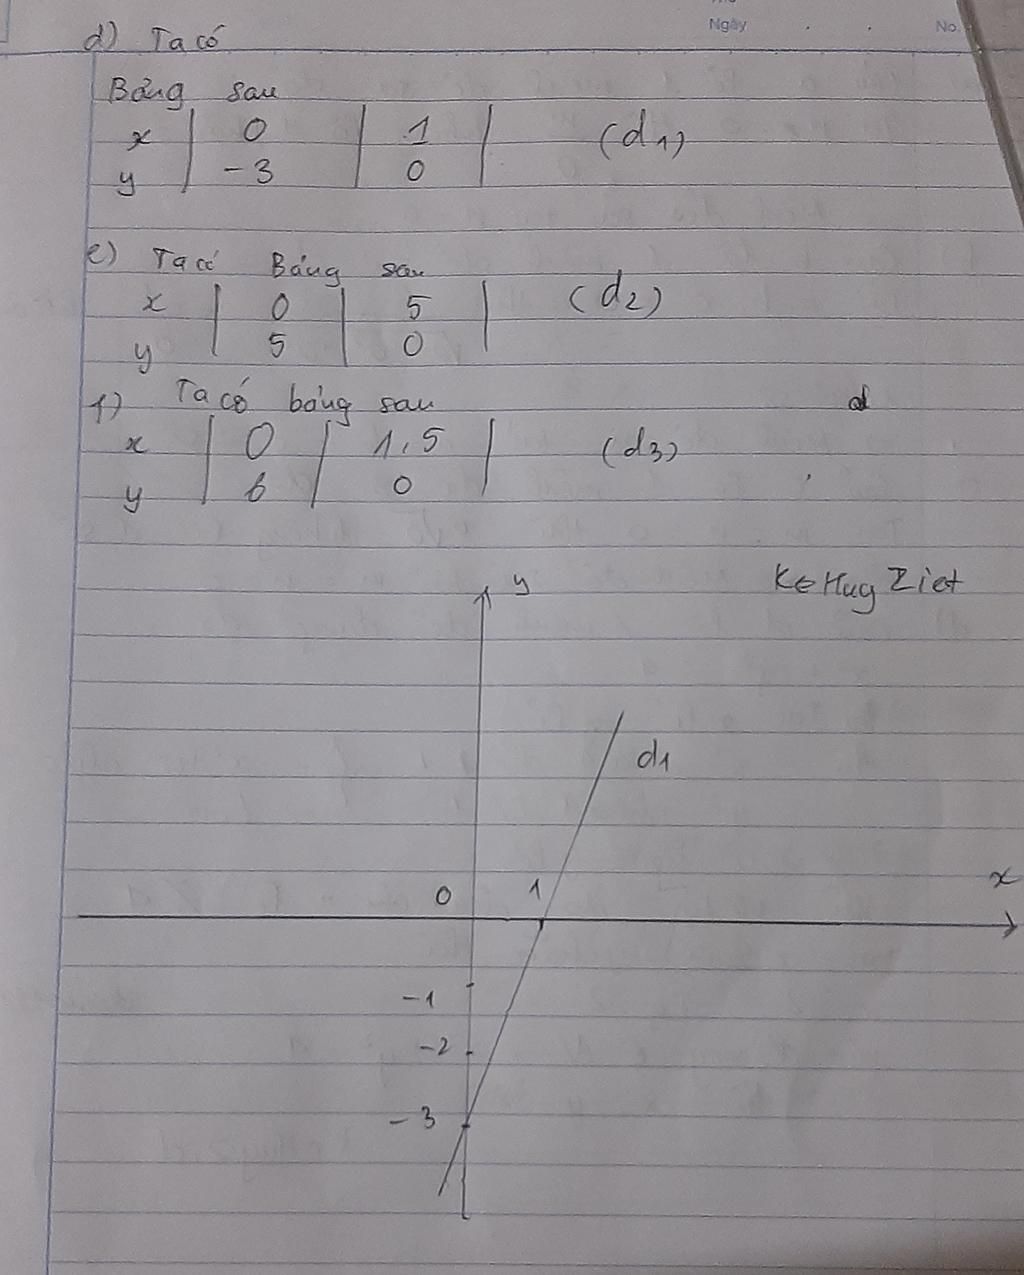 Ngày . . No.
d) Ta có
Bảng sau
x | 0 | 1 | (d1)
y | -3 | 0 |
e) Ta có Bảng sau
x | 0 | 5 | (d2)
y | 5 | 0 |
f) Ta có bảng sau
x | 0 | 1,5 | (d3)
y | 6 | 0 |
y
d1
0 1 x
-1
-2
-3